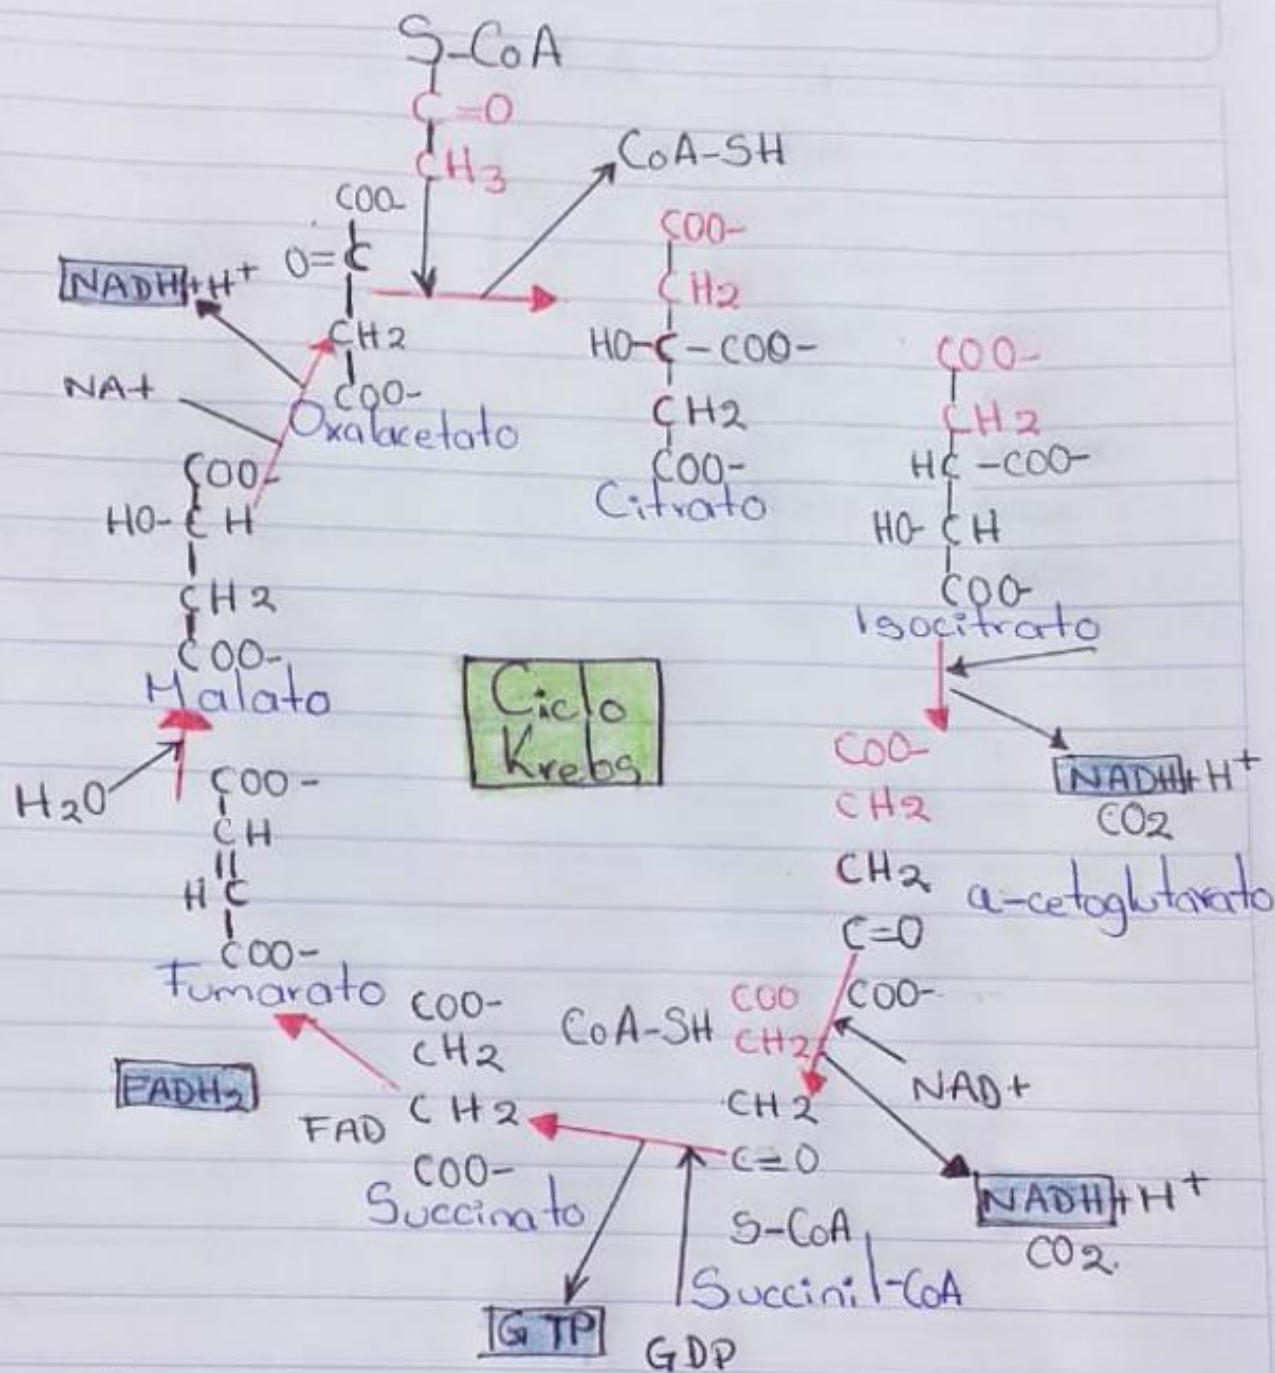 S-CoA
C=O
CH3
CoA-SH
COO-
O=C
CH2
COO-
Oxalacetato
NADH+H+
NA+
COO-
CH2
HO-C-COO-
CH2
COO-
Citrato
COO-
CH2
HC-COO-
HO-CH
COO-
Isocitrato
NADH+H+
CO2
COO-
CH2
CH2
C=O
COO-
a-cetoglutarato
NAD+
NADH+H+
CO2.
CoA-SH
COO
CH2
CH2
C=O
S-CoA
Succinil-CoA
GDP
GTP
COO-
CH2
CH2
COO-
Succinato
FAD
FADH2
COO-
CH
HC
COO-
Fumarato
H2O
COO-
HO-CH
CH2
COO-
Malato
Ciclo
Krebs